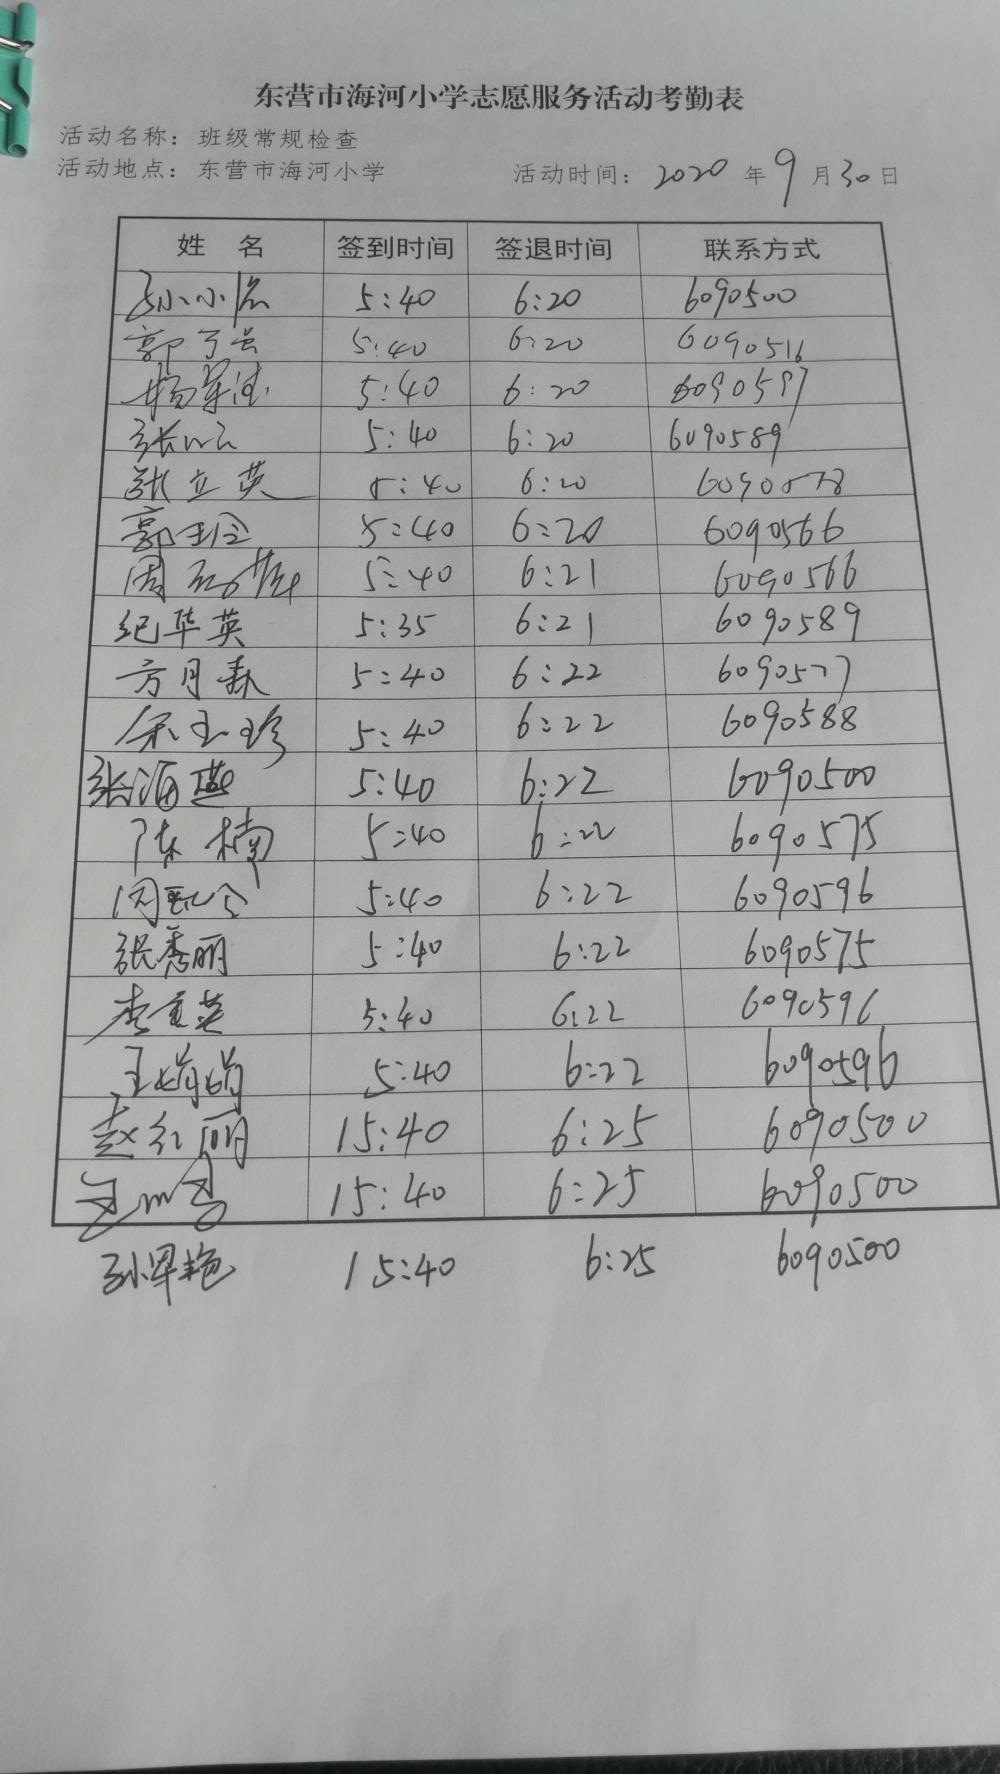 东营市海河小学志愿服务活动考勤表
活动名称：班级常规检查
活动地点：东营市海河小学 活动时间：2020年9月30日
姓 名 签到时间 签退时间 联系方式
5:40 6:20 6090500
5:40 6:20 6090516
5:40 6:20 6090597
5:40 6:20 6090589
张立英 5:40 6:20 6090578
5:40 6:20 6090566
5:40 6:21 6090566
纪华英 5:35 6:21 6090589
方月森 5:40 6:22 6090577
宋玉珍 5:40 6:22 6090588
张海燕 5:40 6:22 6090500
陈楠 5:40 6:22 6090575
5:40 6:22 6090596
张秀丽 5:40 6:22 6090575
5:40 6:22 6090596
王娟娟 5:40 6:22 6090596
赵红丽 15:40 6:25 6090500
15:40 6:25 6090500
孙军艳 15:40 6:25 6090500